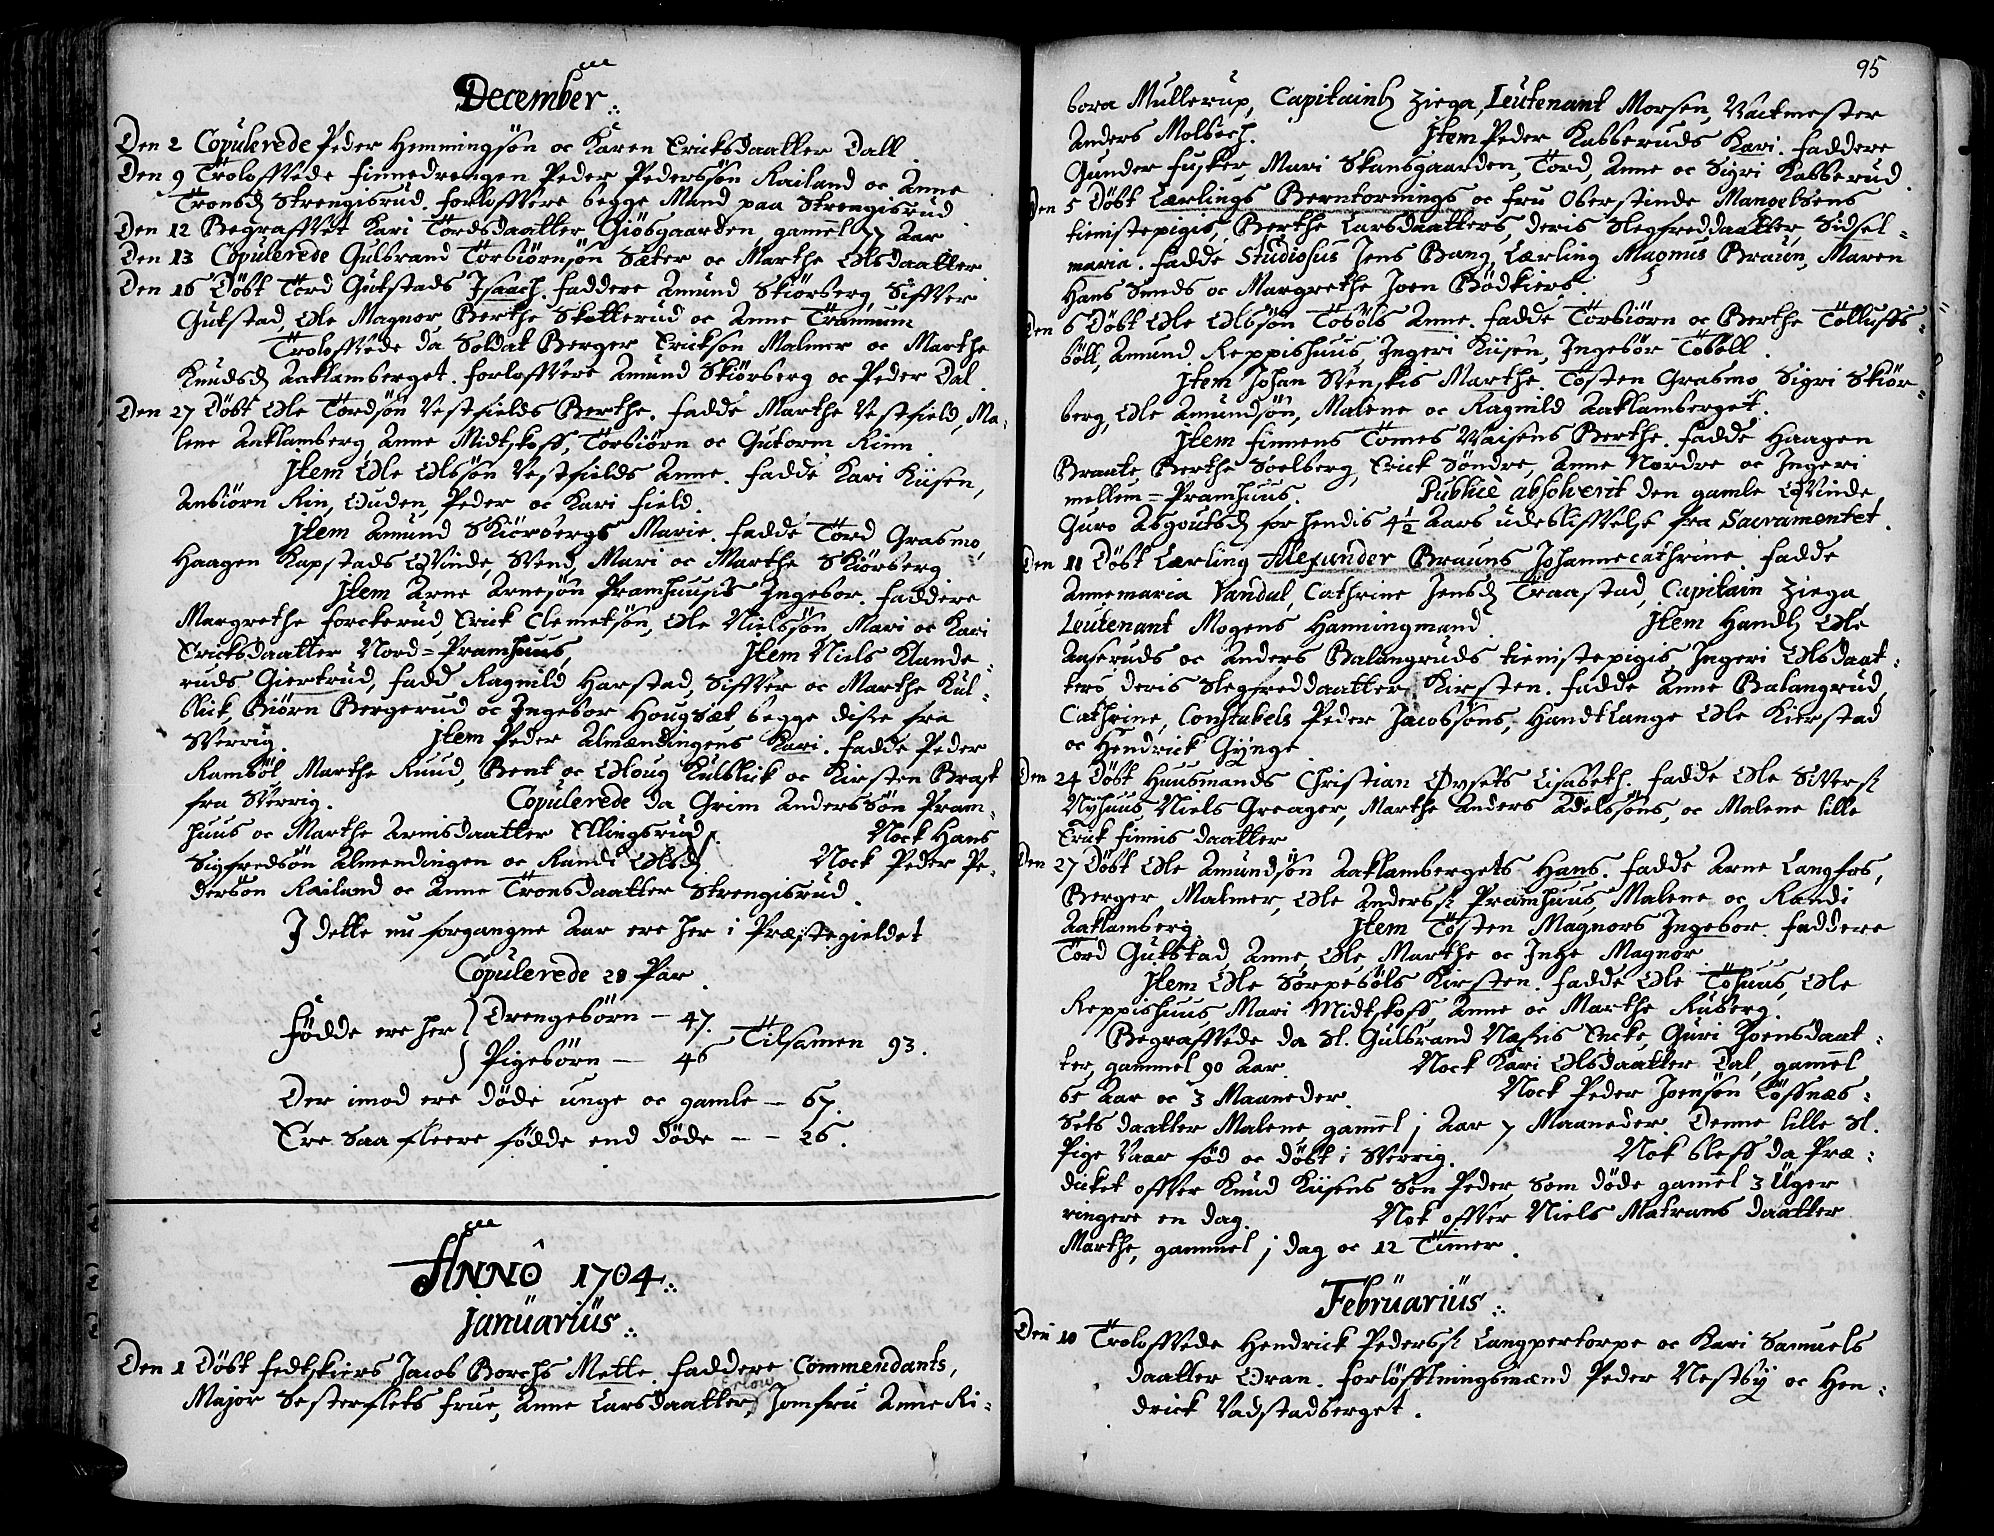 December
Den 2 Copulerede Peder Hemmingsøn oc Karen Ericksdaatter Dall.
Den 9 Trolofvede finnedrengen Peder Pedersøn Railand oc Anne
Tronsd. Strengisrud. forlofvere begge Mænd paa Strengisrud
Den 12 Begrafvet Kari Tordsdaatter Giøsgaarden, gamel 77 Aar
Den 13 Copulerede Gulbrand Torbiørnsøn Sæter oc Marthe Olsdaatter
Den 16 Døbt Tord Gutstads Isaach. faddere Amund Skiørberg, Siffver
Gutstad, Ole Magnor Berthe Skotterud oc Anne Trannum
Trolofvede da Soldat Berger Ericksøn Malmer oc Marthe
Knudsd. Aaklamberget. forlofvere Amund Skiørberg oc Peder Dal.
Den 27 Døbt Ole Tordsøn Vestfields Berthe. fadde Marthe Vestfield, Ma-
lene Aaklamberg, Anne Midtskoff, Torbiørn oc Gutorm Rinn.
Item Ole Olsøn Vestfields Anne. fadde Kari Kiisen,
Anbiørn Rin, Ouden, Peder oc Kari field.
Item Amund Skiørbergs Marie. fadde Tord Grasmo,
Haagen Kapstads Qvinde, Svend, Mari oc Marthe Skiørberg
Item Arne Arnesøn Pramhuusis Ingebor. faddere
Margrethe forckerud, Erick Clemetsøn, Ole Nielssøn, Mari oc Kari
Ericksdaatter Nord=Pramhuus. Item Niels Klande-
ruds Giertrud, fadd Ragnild Harstad, Siffver oc Marthe Kul-
blick, Biørn Bergerud oc Ingebor Hougsæt, begge disse fra
Sverrig. Item Peder Almændingens Kari. fadde Peder
Rambøl, Marthe Ruud, Bent oc Oloug Kulblick oc Kirsten Brast
fra Sverrig. Copulerede da Grim Anderssøn Pram-
huus oc Marthe Arnisdaatter Ellingsrud. Nock Hans
Sigfredsøn Almendingen oc Randi Olsd. Nock Peder Pe-
dersøn Railand oc Anne Tronsdaatter Strengisrud.
I dette nu forgangne Aar ere her i Præstegieldet
Copulerede 28 Par.
Fødde ere her Drengebørn — 47.
Pigebørn — 46 Tilsamen 93.
Der imod ere døde unge oc gamle — 67.
Ere saa fleere fødde end døde — — 26.
ANNO 1704
Januarius
Den 1 Døbt fedtskiers Jacob Borchs Mette. faddere Commendants,
Major Sesterflets frue, Anne Larsdaatter, Jomfru Anne Ri-
95
bora Mullerup, Capitain Ziega, Leutenant Morsen, Vactmester
Anders Molbech. Item Peder Kabberuds Kari. faddere
Gunder fusker, Mari Skansgaarden, Tord, Anne oc Sigri Kabberud.
Den 5 Døbt Lærlings Berntornings oc fru Oberstinde Mangelsens
tienistepigis, Berthe Larsdaatters, deris Slegfreddaatter, Sidsel-
maria. fadde Studiosus Jens Bang, Lærling Magnus Braun, Maren
Hans Smeds oc Margrethe Joen Bødkiers
Den 6 Døbt Ole Olssøn Tobøls Anne. fadde Torbiørn oc Berthe Tollufs-
bøll, Amund Reppishuus, Ingeri Kiisen, Ingebor Tobøll.
Item Johan Svenskis Marthe. Tosten Grasmo, Sigri Skiør-
berg, Ole Amundsøn, Malene oc Ragnild Aaklamberget.
Item finnens Tomes Vaisens Berthe. fadde Haagen
Braate, Berthe Soelberg, Erick Søndre, Anne Nordre oc Ingeri
mellem=Pramhuus. Publicè absolverit den gamle Qvinde,
Guro Asgoutsd. for hendis 4½ Aars udeblifvelse fra Sacramentet.
Den 11 Døbt Lærling Alexander Brauns Johannecathrine. fadde
Annemaria Vandul, Cathrine Jensd. Traastad, Capitain Ziega,
Leutenant Mogens Hanningmand. Item Handl. Ole
Aaseruds oc Anders Balangruds tienistepigis Ingeri Olsdaat-
ters deris Slegfreddaatter, Kirsten. fadde Anne Balangrud,
Cathrine, Constabels Peder Jacobsøns, Handtlange Ole Kierstad
oc Hendrick Gynge
Den 24 Døbt Huusmands Christian Ovsets Lisabeth. fadde Ole Siversl.
Nyhuus, Niels Greager, Marthe Anders Adelssøns, oc Malene lille
Erick finnis daatter
Den 27 Døbt Ole Amundsøn Aaklambergets Hans. fadde Arne Langfos,
Berger Malmer, Ole Anderss. Pramhuus, Malene oc Randi
Aaklamberg. Item Tosten Magnors Ingebor. faddere
Tord Gutstad, Anne, Ole Marthe oc Inge Magnor.
Item Ole Sorpebøls Kirsten. fadde Ole Tohuus, Ole
Reppishuus Mari Midtskoff, Anne oc Marthe Ruberg.
Begrafvede da Sl. Gulbrand Næssis Encke, Guri Joensdaat-
ter, gammel 90 Aar. Nock Kari Olsdaatter Dal, gamel
65 Aar oc 3 Maaneder. Nock Peder Joensøn Løffnæs-
Sets daatter Malene, gamel 1 Aar 7 Maaneder. Denne lille Sl.
Pige Vaar fød oc døbt i Sverrig. Nok bleff da Præ-
dicket offver Knud Kiisens Søn Peder, som døde gamel 3 Uger
ringere en dag. Nok offver Niels Matrans daatter
Marthe, gammel 1 dag oc 12 Timer.
Februarius
Den 10 Trolofvede Hendrick Pederss. Langpertorpe oc Kari Samuels
daatter Oran. forløfftningsmænd Peder Nestby oc Hen-
drick Vadstadberget.